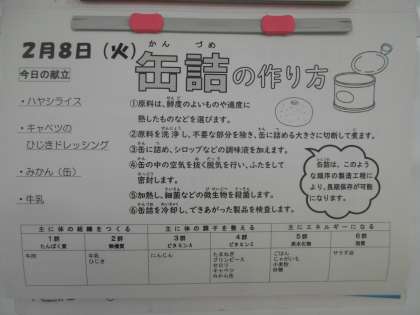 2月8日（火）
缶詰の作り方
かん づめ
今日の献立
・ハヤシライス
・キャベツの
ひじきドレッシング
・みかん（缶）
・牛乳
①原料は、鮮度のよいものや適度に
熟したものなどを選びます。
②原料を洗浄し、不要な部分を除き、缶に詰める大きさに切断して煮ます。
③缶に詰め、シロップなどの調味液を加えます。
④缶の中の空気を抜く脱気を行い、ふたをして
密封します。
⑤加熱し、細菌などの微生物を殺菌します。
⑥缶詰を冷却し、できあがった製品を検査します。
缶詰は、このような
順序の製造工程に
より、長期保存が可能
になります。
主に体の組織をつくる
主に体の調子を整える
主にエネルギーになる
1群 2群 3群 4群 5群 6群
たんぱく質 無機質 ビタミンA ビタミンC 炭水化物 脂質
牛肉
牛乳
ひじき
にんじん
たまねぎ
グリンピース
セロリ
キャベツ
みかん缶
ごはん
じゃがいも
小麦粉
砂糖
サラダ油